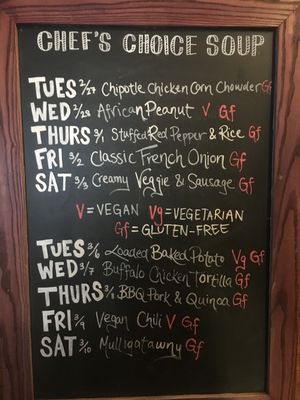 CHEF'S CHOICE SOUP
TUES 2/27 Chipotle Chicken Corn Chowder Gf
WED 2/28 African Peanut V Gf
THURS 3/1 Stuffed Red Pepper & Rice Gf
FRI 3/2 Classic French Onion Gf
SAT 3/3 Creamy Veggie & Sausage Gf
V = VEGAN Vg = VEGETARIAN
Gf = GLUTEN-FREE
TUES 3/6 Loaded Baked Potato Vg Gf
WED 3/7 Buffalo Chicken Tortilla Gf
THURS 3/8 BBQ Pork & Quinoa Gf
FRI 3/9 Vegan Chili V Gf
SAT 3/10 Mulligatawny Gf